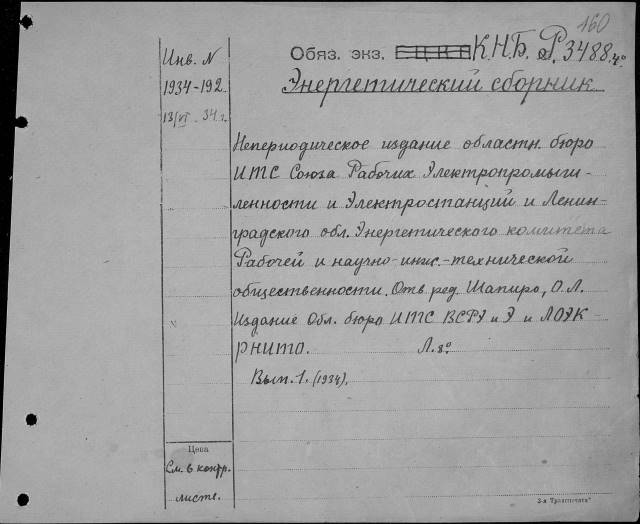 160
Инв. N
1934-192.
13/VI - 34 г.
Обяз. экз. К.Н.Б. Р. 3488. 4°
Энергетический сборник
Непериодическое издание областн. бюро
ИТС Союза Рабочих Электропромыш-
ленности и Электростанций и Ленин-
градского обл. Энергетического комитета
Рабочей и научно-инж.-технической
общественности. Отв. ред. Шапиро, О.Л.
Издание Обл. бюро ИТС ВСРЭ и Э и ЛОЭК
РНИТО. Л. 8°
Вып. 1. (1934).
Цена
См. в контр.
листе.
3-я Транспечать"